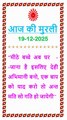 आज की मुरली
19-12-2025
"मीठे बच्चे अब घर
जाना है इसलिए देही
अभिमानी बनो, एक बाप
को याद करो तो अन्त
मति सो गति हो जायेगी"